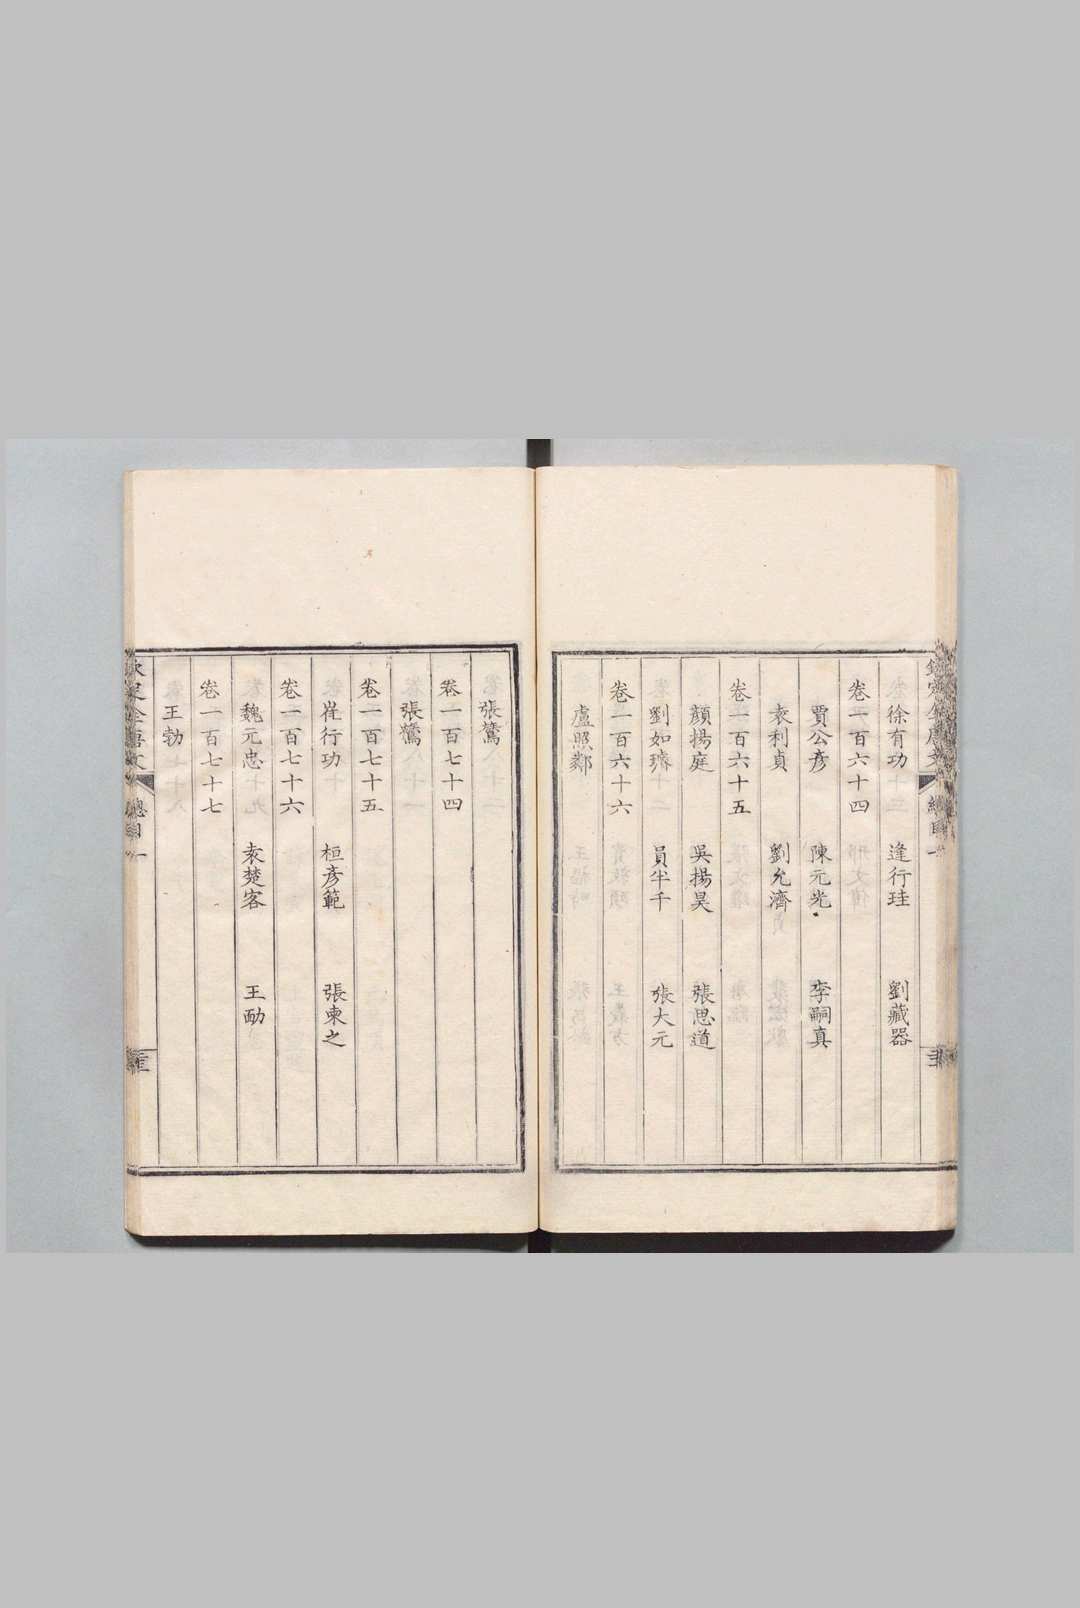 徐有功 逄行珪 劉藏器
卷一百六十四
賈公彥 陳元光 李嗣真
袁利貞 劉允濟
卷一百六十五
顏揚庭 吳揚昊 張思道
劉如璹 員半千 張大元
卷一百六十六
盧照鄰
張鷟
卷一百七十四
張鷟
卷一百七十五
崔行功 桓彥範 張柬之
卷一百七十六
魏元忠 袁楚客 王勮
卷一百七十七
王勃
欽定全唐文 總目一